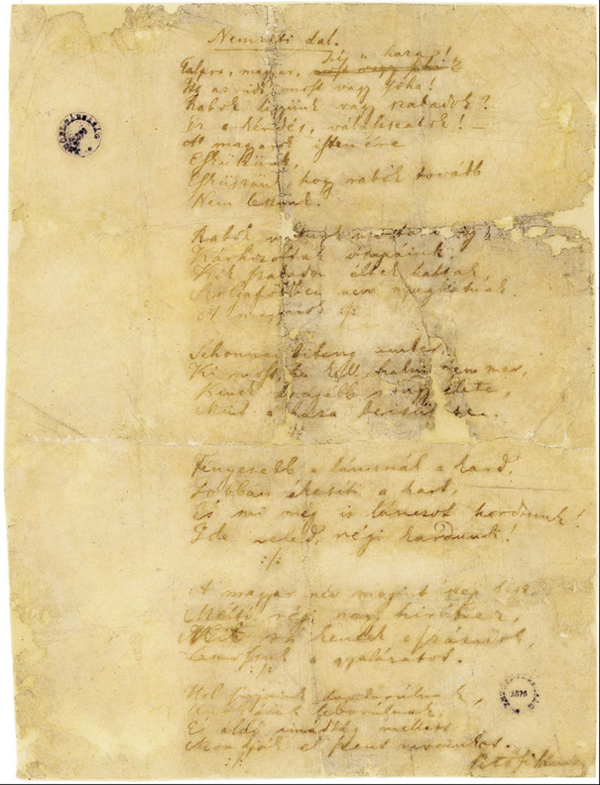 Nemzeti dal.
híj a haza!
Talpra, magyar, most vagy soha!
Itt az idő, most vagy soha!
Rabok legyünk vagy szabadok?
Ez a kérdés, válasszatok! –
A magyarok istenére
Esküszünk,
Esküszünk hogy rabok tovább
Nem leszünk!
Rabok voltunk mostanáig
Kárhozottak ősapáink,
Kik szabadon éltek haltak,
Szolgaföldben nem nyughatnak.
A magyarok :/:
Sehonnai bitang ember,
Ki most, ha kell, halni nem mer,
Kinek drágább rongy élete,
Mint a haza becsülete.
:/:
Fényesebb a láncznál a kard,
Jobban ékesíti a kart,
És mi még is lánczot hordtunk!
Ide veled, régi kardunk!
:/:
A magyar név megint szép lesz,
Méltó régi nagy hiréhez,
Mit rá kentek a századok,
Lemossuk a gyalázatot.
:/:
Hol sirjaink domborulnak,
Unokáink leborulnak
És áldó imádság mellett
Mondják el szent neveinket.
:/:
Petőfi Sándor
1876